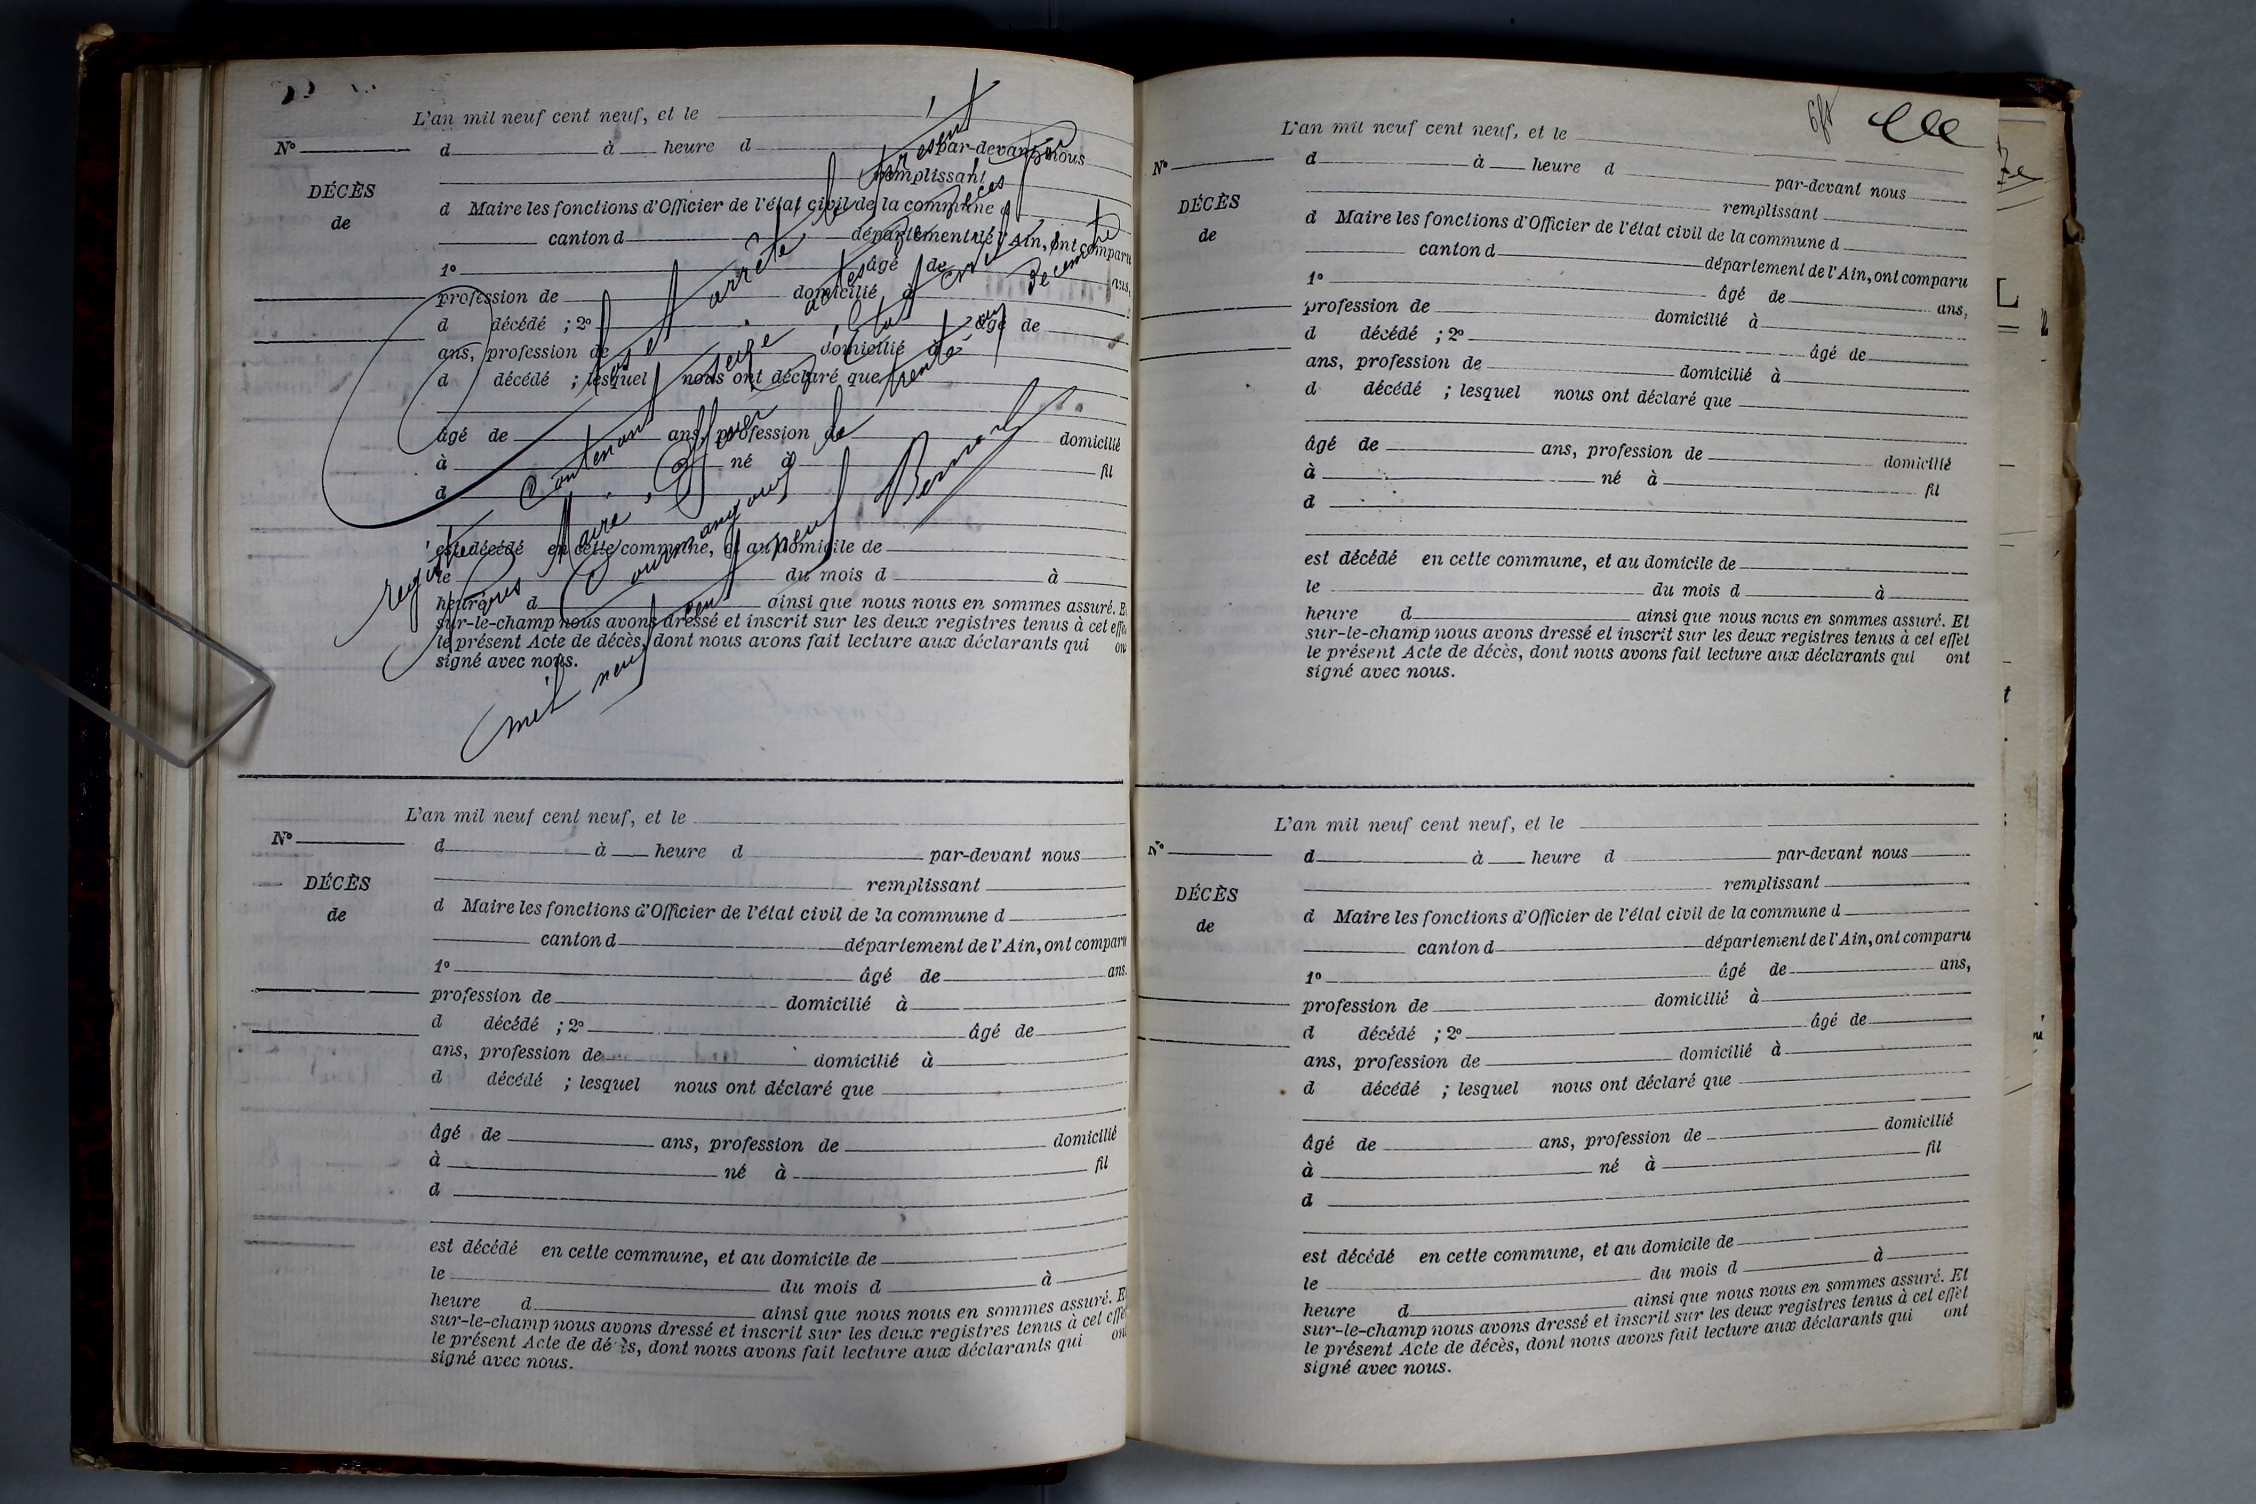 L'an mil neuf cent neuf, et le
N° d à heure d par-devant nous
DÉCÈS remplissant
de d Maire les fonctions d'Officier de l'état civil de la commune d
canton d département de l'Ain, ont comparu
1° âgé de ans,
profession de domicilié à
d décédé ; 2° âgé de
ans, profession de domicilié à
d décédé ; lesquel nous ont déclaré que
âgé de ans, profession de domicilié
à né à fil
d
est décédé en cette commune, et au domicile de
le du mois d à
heure d ainsi que nous nous en sommes assuré. E
sur-le-champ nous avons dressé et inscrit sur les deux registres tenus à cet effe
le présent Acte de décès, dont nous avons fait lecture aux déclarants qui on
signé avec nous.
Clos et arrêté le présent
registre Contenant seize actes de décès par
nous Maire, Officier de l'État Civil de
le trente-un Décembre
mil neuf cent neuf
Bernard
L'an mil neuf cent neuf, et le
N° d à heure d par-devant nous
DÉCÈS remplissant
de d Maire les fonctions d'Officier de l'état civil de la commune d
canton d département de l'Ain, ont comparu
1° âgé de ans
profession de domicilié à
d décédé ; 2° âgé de
ans, profession de domicilié à
d décédé ; lesquel nous ont déclaré que
âgé de ans, profession de domicilié
à né à fil
d
est décédé en cette commune, et au domicile de
le du mois d à
heure d ainsi que nous nous en sommes assuré. E
sur-le-champ nous avons dressé et inscrit sur les deux registres tenus à cet effe
le présent Acte de décès, dont nous avons fait lecture aux déclarants qui on
signé avec nous.
L'an mil neuf cent neuf, et le
N° d à heure d par-devant nous
DÉCÈS remplissant
de d Maire les fonctions d'Officier de l'état civil de la commune d
canton d département de l'Ain, ont comparu
1° âgé de ans,
profession de domicilié à
d décédé ; 2° âgé de
ans, profession de domicilié à
d décédé ; lesquel nous ont déclaré que
âgé de ans, profession de domicilié
à né à fil
d
est décédé en cette commune, et au domicile de
le du mois d à
heure d ainsi que nous nous en sommes assuré. Et
sur-le-champ nous avons dressé et inscrit sur les deux registres tenus à cet effet
le présent Acte de décès, dont nous avons fait lecture aux déclarants qui ont
signé avec nous.
L'an mil neuf cent neuf, et le
N° d à heure d par-devant nous
DÉCÈS remplissant
de d Maire les fonctions d'Officier de l'état civil de la commune d
canton d département de l'Ain, ont comparu
1° âgé de ans,
profession de domicilié à
d décédé ; 2° âgé de
ans, profession de domicilié à
d décédé ; lesquel nous ont déclaré que
âgé de ans, profession de domicilié
à né à fil
d
est décédé en cette commune, et au domicile de
le du mois d à
heure d ainsi que nous nous en sommes assuré. Et
sur-le-champ nous avons dressé et inscrit sur les deux registres tenus à cet effet
le présent Acte de décès, dont nous avons fait lecture aux déclarants qui ont
signé avec nous.